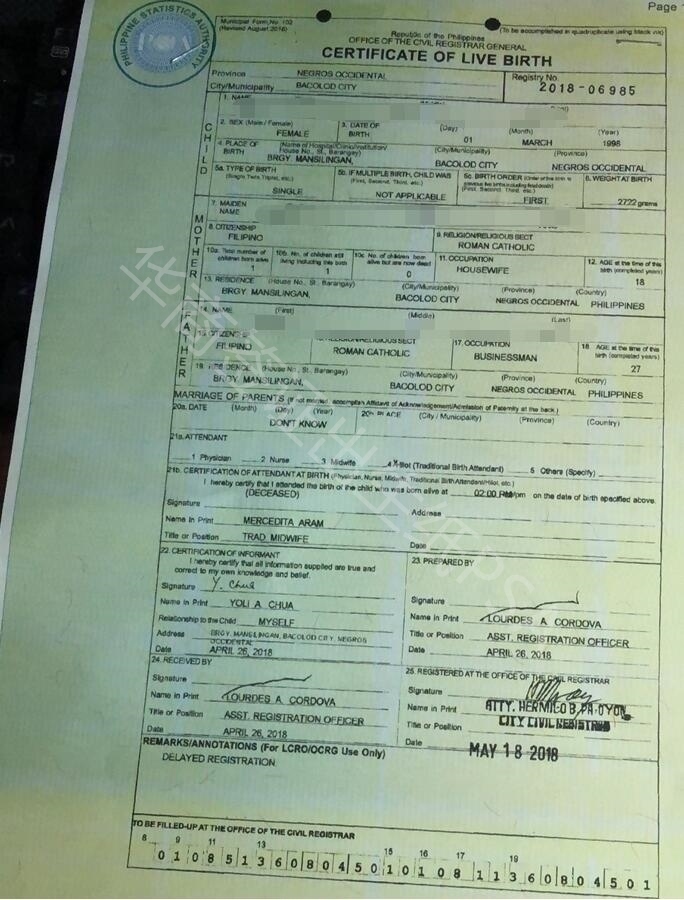 Page
Municipal Form No. 102
(Revised August 2016)
(To be accomplished in quadruplicate using black ink)
Republic of the Philippines
OFFICE OF THE CIVIL REGISTRAR GENERAL
CERTIFICATE OF LIVE BIRTH
PHILIPPINE STATISTICS AUTHORITY
Province NEGROS OCCIDENTAL
City/Municipality BACOLOD CITY
Registry No. 2018-06985
CHILD
1. NAME
2. SEX (Male / Female) FEMALE
3. DATE OF BIRTH (Day) 01 (Month) MARCH (Year) 1998
4. PLACE OF BIRTH (Name of Hospital/Clinic/Institution/ House No., St., Barangay) (City/Municipality) (Province)
BRGY. MANSILINGAN, BACOLOD CITY NEGROS OCCIDENTAL
5a. TYPE OF BIRTH (Single, Twin, Triplet, etc.) SINGLE
5b. IF MULTIPLE BIRTH, CHILD WAS (First, Second, Third, etc.) NOT APPLICABLE
5c. BIRTH ORDER (First, Second, Third, etc.) FIRST
6. WEIGHT AT BIRTH 2722 grams
MOTHER
7. MAIDEN NAME
8. CITIZENSHIP FILIPINO
9. RELIGION/RELIGIOUS SECT ROMAN CATHOLIC
10a. Total number of children born alive 1
10b. No. of children still living including this birth 1
10c. No. of children born alive but are now dead 0
11. OCCUPATION HOUSEWIFE
12. AGE at the time of this birth (completed years) 18
13. RESIDENCE (House No., St., Barangay) (City/Municipality) (Province) (Country)
BRGY. MANSILINGAN, BACOLOD CITY NEGROS OCCIDENTAL PHILIPPINES
FATHER
14. NAME (First) (Middle) (Last)
15. CITIZENSHIP FILIPINO
RELIGION/RELIGIOUS SECT ROMAN CATHOLIC
17. OCCUPATION BUSINESSMAN
18. AGE at the time of this birth (completed years) 27
19. RESIDENCE (House No., St., Barangay) (City/Municipality) (Province) (Country)
BRGY. MANSILINGAN, BACOLOD CITY NEGROS OCCIDENTAL PHILIPPINES
MARRIAGE OF PARENTS (If not married, accomplish Affidavit of Acknowledgement/Admission of Paternity at the back.)
20a. DATE (Month) (Day) (Year) DON'T KNOW
20b. PLACE (City / Municipality) (Province) (Country)
21a. ATTENDANT
1 Physician 2 Nurse 3 Midwife 4 X Hilot (Traditional Birth Attendant) 5 Others (Specify)
21b. CERTIFICATION OF ATTENDANT AT BIRTH (Physician, Nurse, Midwife, Traditional Birth Attendant/Hilot, etc.)
I hereby certify that I attended the birth of the child who was born alive at 02:00 PM am/pm on the date of birth specified above.
(DECEASED)
Signature
Address
Name in Print MERCEDITA ARAM
Title or Position TRAD. MIDWIFE
Date
22. CERTIFICATION OF INFORMANT
I hereby certify that all information supplied are true and
correct to my own knowledge and belief.
Signature Y. Chua
Name in Print YOLI A CHUA
Relationship to the Child MYSELF
Address BRGY. MANSILINGAN, BACOLOD CITY, NEGROS OCCIDENTAL
Date APRIL 26, 2018
23. PREPARED BY
Signature
Name in Print LOURDES A. CORDOVA
Title or Position ASST. REGISTRATION OFFICER
Date APRIL 26, 2018
24. RECEIVED BY
Signature
Name in Print LOURDES A. CORDOVA
Title or Position ASST. REGISTRATION OFFICER
Date APRIL 26, 2018
25. REGISTERED AT THE OFFICE OF THE CIVIL REGISTRAR
Signature
Name in Print ATTY. HERMILO B. PA-OYON
Title or Position CITY CIVIL REGISTRAR
Date MAY 18 2018
REMARKS/ANNOTATIONS (For LCRO/OCRG Use Only)
DELAYED REGISTRATION
TO BE FILLED-UP AT THE OFFICE OF THE CIVIL REGISTRAR
8 9 11 13 15 16 17 19
0 1 0 8 5 1 3 6 0 8 0 4 5 0 1 0 1 0 8 1 1 3 6 0 8 0 4 5 0 1